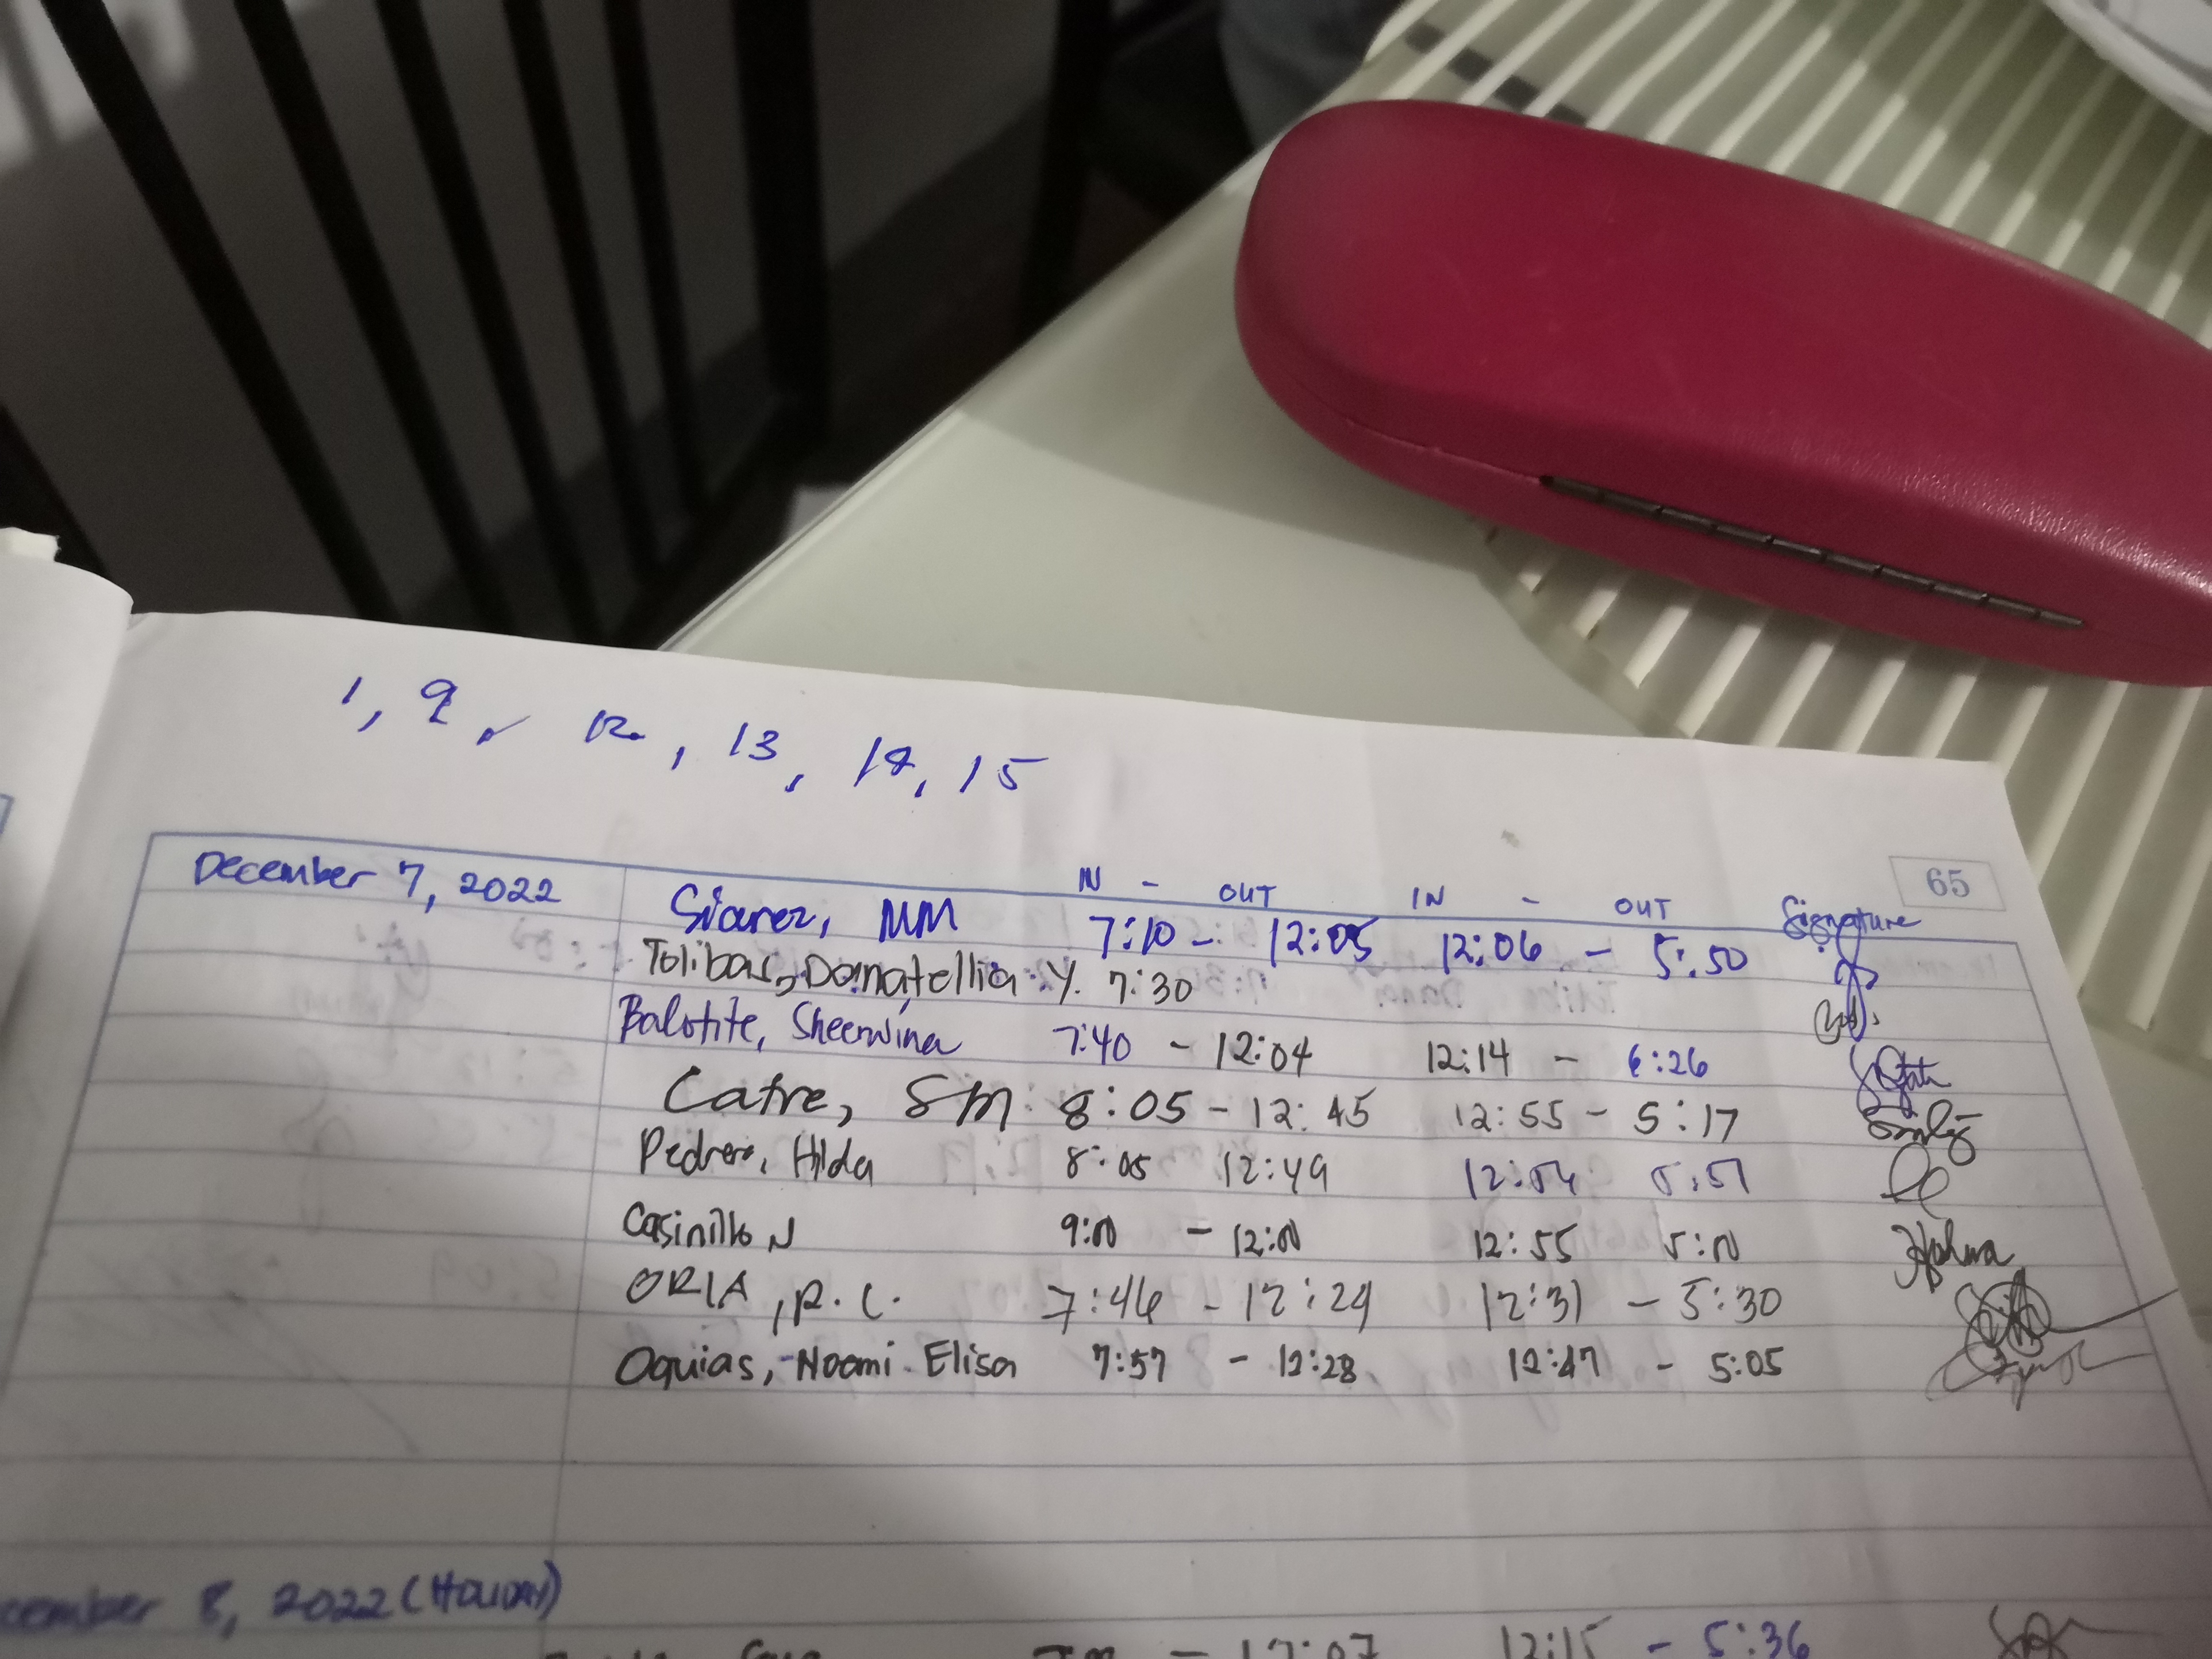 1, 9, 12, 13, 14, 15
65
December 7, 2022 IN - OUT IN - OUT Signature
Siarez, MM 7:10 - 12:05 12:06 - 5:50
Tolibas, Donatellia Y. 7:30
Balotite, Sheerwina 7:40 - 12:04 12:14 - 6:26
Catre, SM 8:05 - 12:45 12:55 - 5:17
Hilda 8:05 12:49 12:54 5:51
Casinillo N 9:00 - 12:00 12:55 5:00
ORIA, R.C. 7:46 - 12:24 12:31 - 5:30
Oquias, Noemi Elisa 7:57 - 12:28 12:47 - 5:05
cember 8, 2022 (HOLIDAY)
12:07 12:15 - 5:36